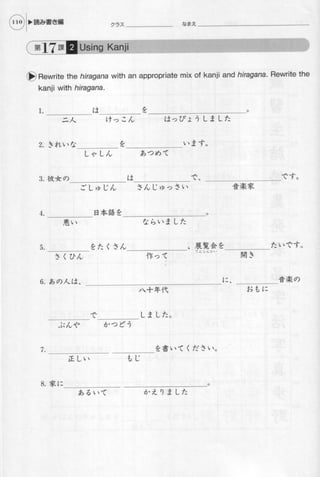 110 ▶読み書き編 クラス なまえ
第17課 2 Using Kanji
Rewrite the hiragana with an appropriate mix of kanji and hiragana. Rewrite the
kanji with hiragana.
1. は を 。
二人 けっこん はっぴょうしました
2. きれいな を います。
しゃしん あつめて
3. 彼女の は で、 です。
ごしゅじん さんじゅっさい 音楽家
4. 日本語を 。
悪い ならいました
5. をたくさん 、展覧会を たいです。
さくひん 作って てんらんかい 開き
6. あの人は、 に、 音楽の
八十年代 おもに
で しました。
ぶんや かつどう
7. を書いてください。
正しい もじ
8. 家に 。
あるいて かえりました